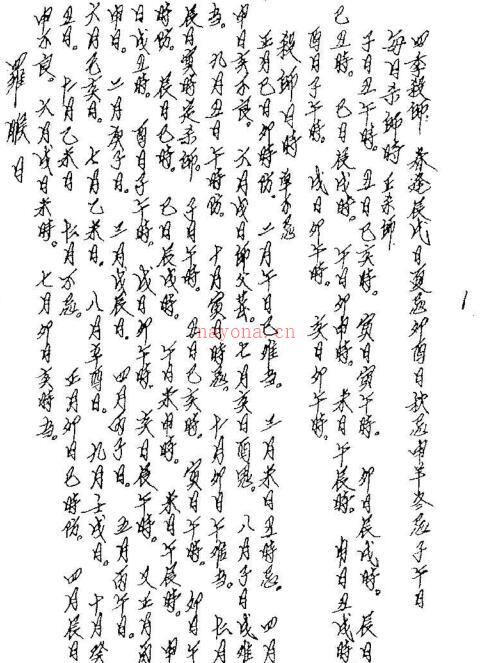 四季殺師 春逢辰戌日夏忌卯酉日秋忌申羊冬忌子午日
每日杀師時
子日丑午時。丑日巳亥時。寅日寅午時。卯日辰戌時。辰日
巳丑時。巳日辰戌時。午日卯申時。未日午辰時。申日丑戌時
酉日子午時。戌日卯午時。亥日卯午時。
殺師日時
正月巳日卯時防。二月午日巳难当。三月未日丑時忌。四月
申日亥不良。六月戌日師父苦。七月亥日酉。八月子日戌难
当。九月丑日午時防。十月寅日時忌。十月卯日午难当。
辰日寅時是杀師。子日午時。丑日巳亥時。寅日午時。卯日午
時防。辰日巳時。巳日辰戌時。午日未申時。未日午辰時。申
日戌丑時。酉日子午時。戌日卯午時。亥日辰午時。又正月
申日。二月庚子日。三月戊辰日。四月丙子日。五月丙午日。
六月己亥日。七月乙未日。八月辛酉日。九月壬戌日。十月癸
丑日。十月乙未日。正月卯日巳時防。四月辰日
申不良。六月戌日未時。七月卯日亥時当。
羅睺日
1
nayona.cn